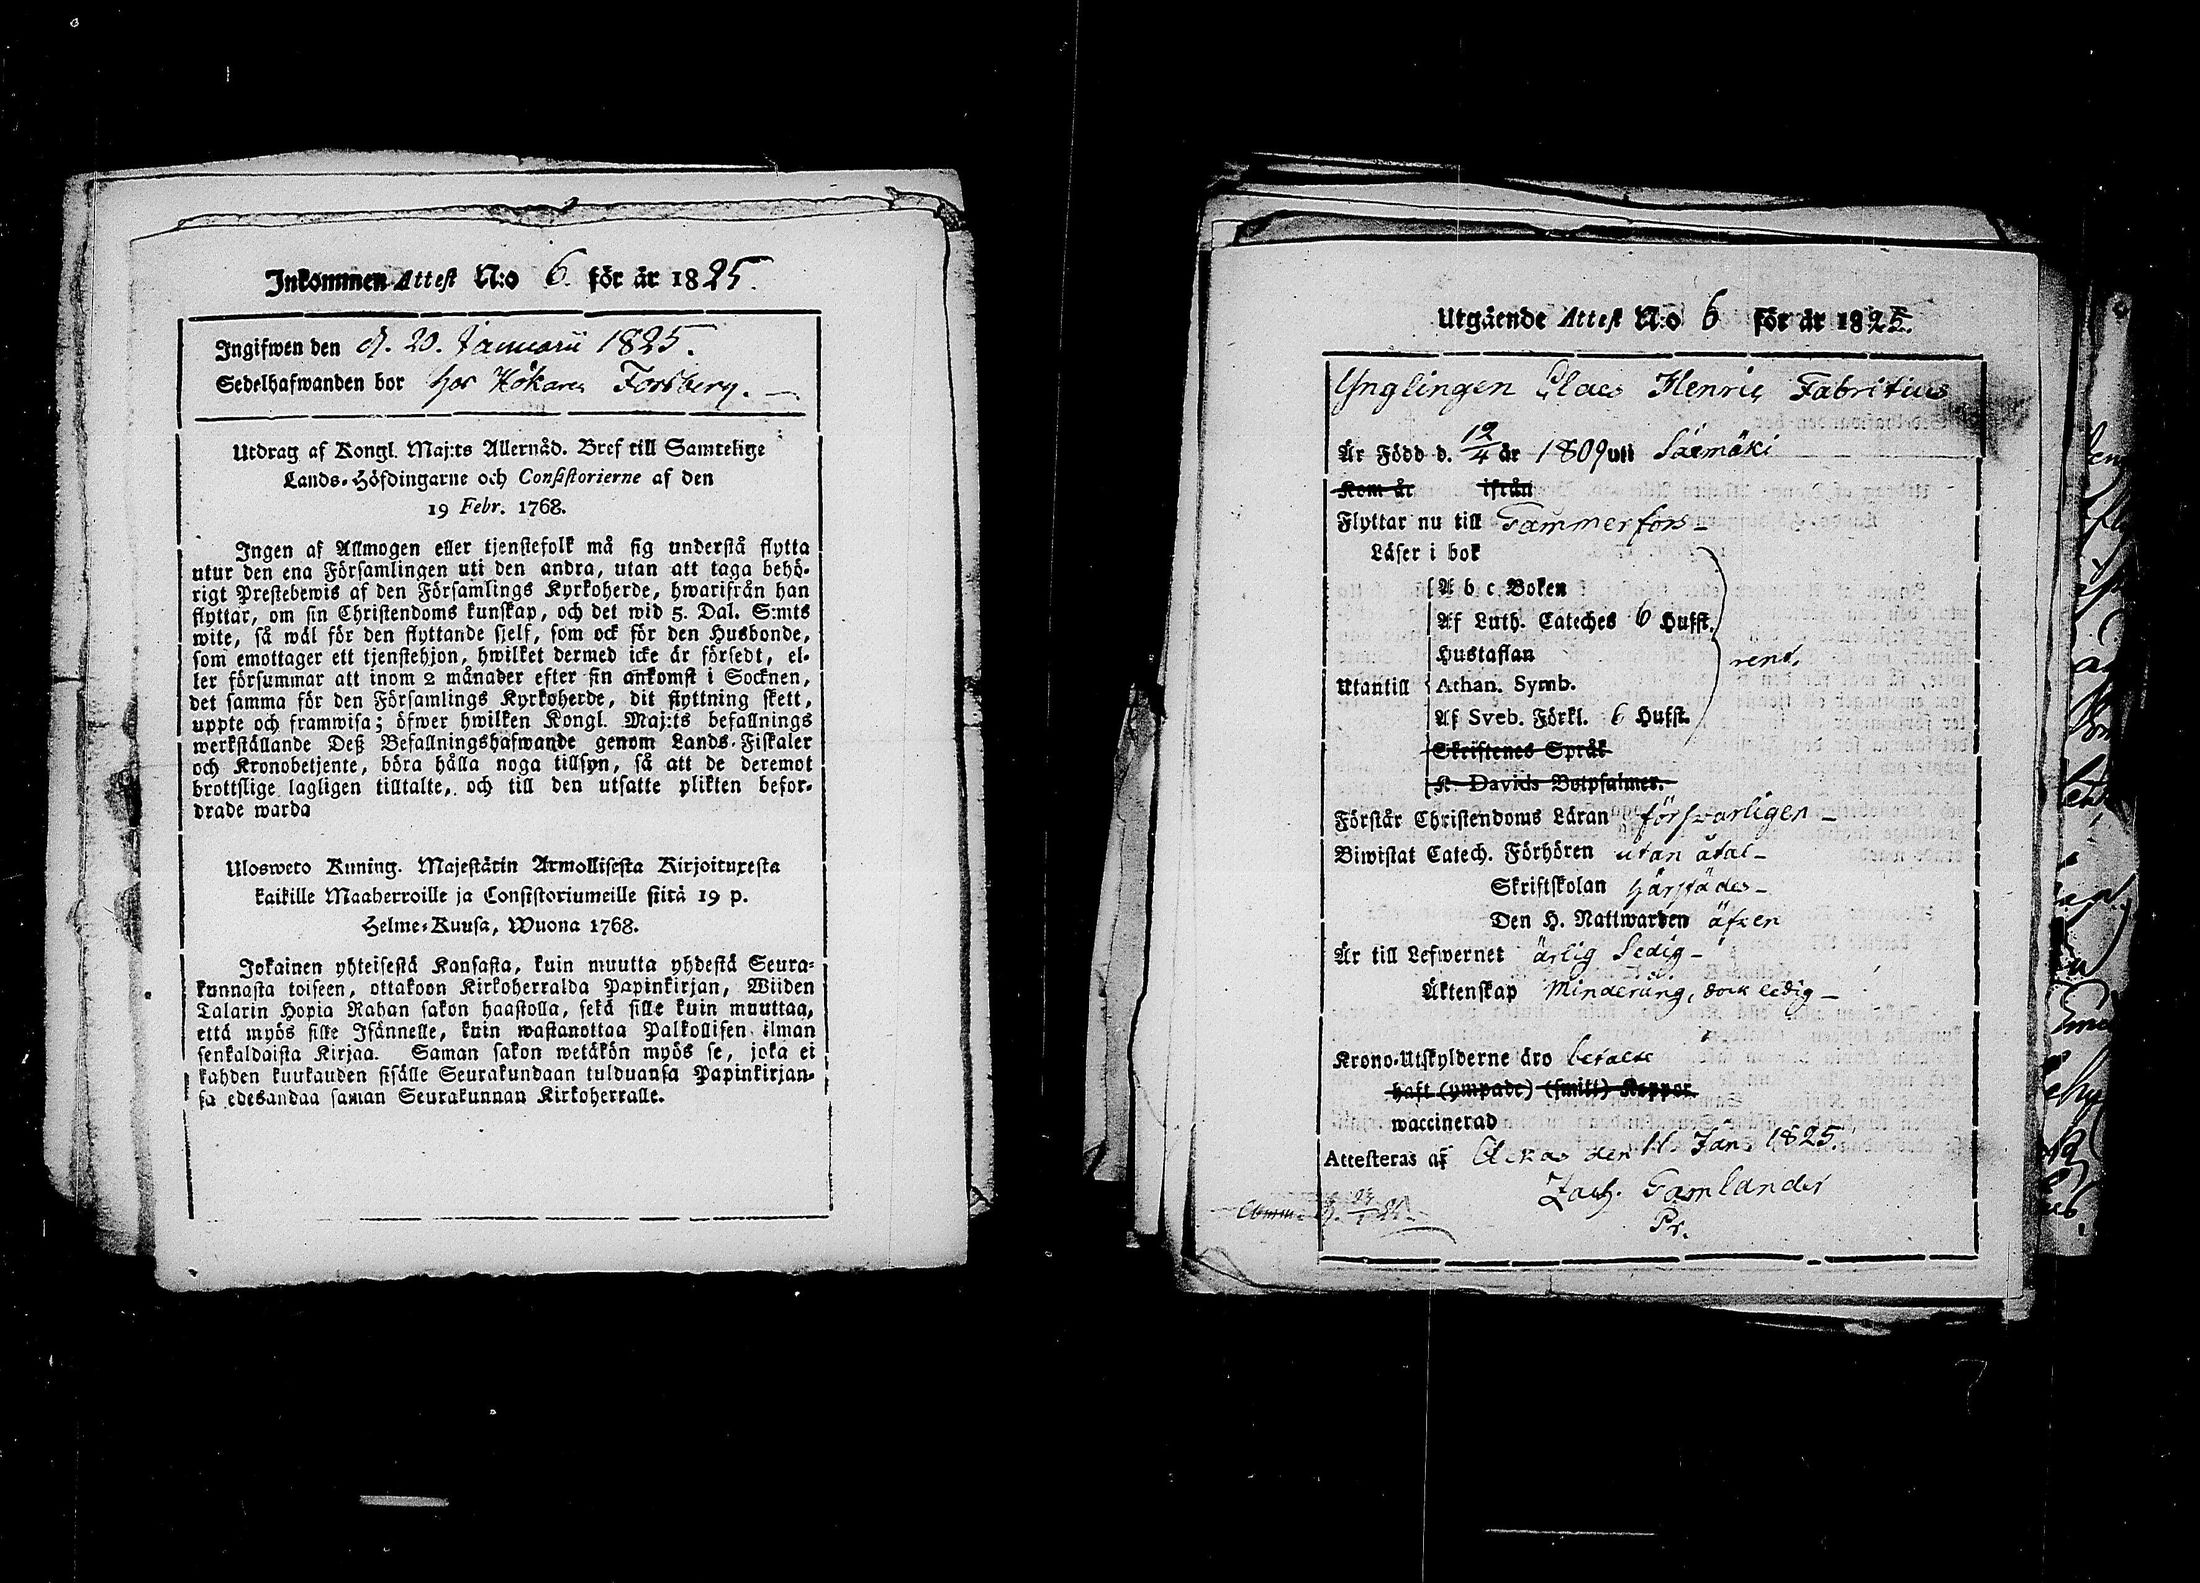 Inkommen Attest N:o 6. för år 1825.
Ingifwen den d. 20. Januarii 1825.
Sedelhafwanden bor hos Hökaren Forsberg. —
Utdrag af Kongl. Maj:ts Allernåd. Bref till Samtelige
Lands-Höfdingarne och Consistorierne af den
19 Febr. 1768.
Ingen af Allmogen eller tjenstefolk må sig understå flytta
utur den ena Församlingen uti den andra, utan att taga behö-
rigt Prestebewis af den Församlings Kyrkoherde, hwarifrån han
flyttar, om sin Christendoms kunskap, och det wid 5. Dal. S:mts
wite, så wäl för den flyttande sjelf, som ock för den Husbonde,
som emottager ett tjenstehjon, hwilket dermed icke är försedt, el-
ler försummar att inom 2 månader efter sin ankomst i Socknen,
det samma för den Församlings Kyrkoherde, dit flyttning skett,
uppte och framwisa; öfwer hwilken Kongl. Maj:ts befallnings
werkställande Deß Befallningshafwande genom Lands-Fiskaler
och Kronobetjente, böra hålla noga tillsyn, så att de deremot
brottslige lagligen tilltalte, och till den utsatte plikten befor-
drade warda
Ulosweto Kuning. Majestätin Armollisesta Kirjoituxesta
kaikille Maaherroille ja Consistoriumeille siitä 19 p.
Helme-Kuusa, Wuona 1768.
Jokainen yhteisestä Kansasta, kuin muutta yhdestä Seura-
kunnasta toiseen, ottakoon Kirkoherralda Papinkirjan, Wiiden
Talarin Hopia Rahan sakon haastolla, sekä sille kuin muuttaa,
että myös sille Isännelle, kuin wastanottaa Palkollisen ilman
senkaldaista Kirjaa. Saman sakon wetäkön myös se, joka ei
kahden kuukauden sisälle Seurakundaan tulduansa Papinkirjan-
sa edesandaa saman Seurakunnan Kirkoherralle.
Utgående Attest N:o 6 för år 1825.
Ynglingen Claes Henric Fabritius
Är Född d. 12/4 år 1809 uti Säxmäki
Kom år ifrån
Flyttar nu till Tammerfors —
Läser i bok
A b c Boken
Af Luth. Cateches 6 Hufst.
Hustaflan
rent.
Utantill Athan. Symb.
Af Sveb. Förkl. 6 Hufst.
Skriftenes Språk
K. Davids Botpsalmer.
Förstår Christendoms Läran försvarligen —
Biwistat Catech. Förhören utan åtal —
Skriftskolan härstädes —
Den H. Nattwarden äfven
Är till Lefwernet ärlig Sedig —
Äktenskap Minderårig, dock ledig —
Krono-Utskylderne äro betalte
haft (ympade) (smitt) Koppor
waccinerad
Attesteras af Akas den 11. Jan. 1825.
Zach. Gamlander
Pr.